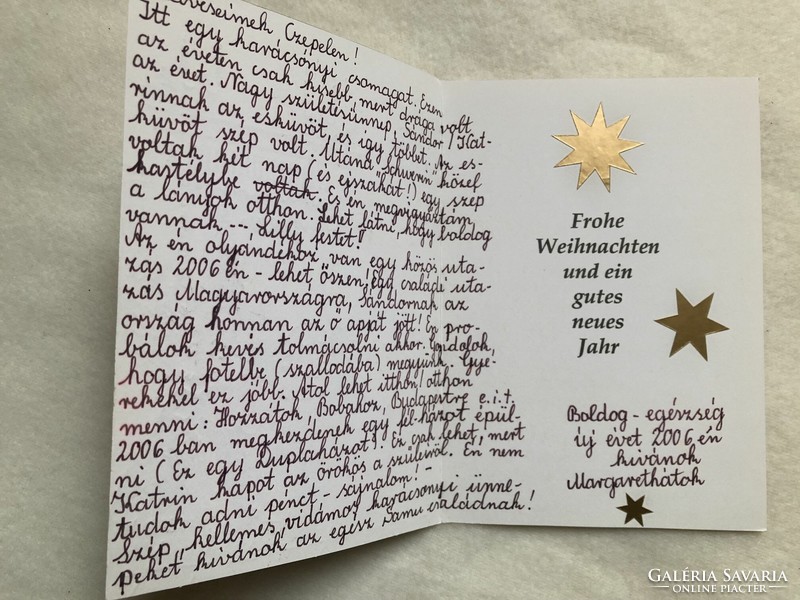 Kedveseimek Csepelen!
Itt egy karácsónyi csomagat. Ezen
az éveten csak kisebb, mert drága volt
az évet. Nagy születésünnep Sándor / Kat-
rinnak az esküvöt és igy többet. Az es-
küvöt szép volt. Utána " Schwerin" közel
voltak két nap (és éjszakát!) egy szép
kastélybe voltak. Es én megvigyáztam
a lányok otthon. Lehet látni, hogy boldog
vannak --, Lilly festet!
Az én olyándékoz van egy közös uta-
zás 2006 én - lehet őszen, egy családi uta-
zás Magyarországra, Sándornak az
ország honnan az ő apját jött! En pro-
bálok kevés tolmácsolni akkor. Gondolok,
hogy fotelbe (szallodába) megyünk. Gye-
rekekel ez jobb. Atol lehet itthon/otthon
menni: Hozzátok, Bobákoz, Budapestre e.i.t.
2006 ban megkezdenek egy fél-házot épül-
ni (Ez egy Duplaházot). Ez csak lehet, mert
Katrin kapot az örökös a szüleiről. En nem
tudok adni pénct - sájnalom! -
Szép, kellemes, vidámoy karácsonyi ünne-
peket kivánok az egész Samu családnak!
Frohe
Weihnachten
und ein
gutes
neues
Jahr
Boldog - egészség
új évet 2006 én
kivánok
Margarethátok
GALÉRIA SAVARIA
ONLINE PIACTÉR